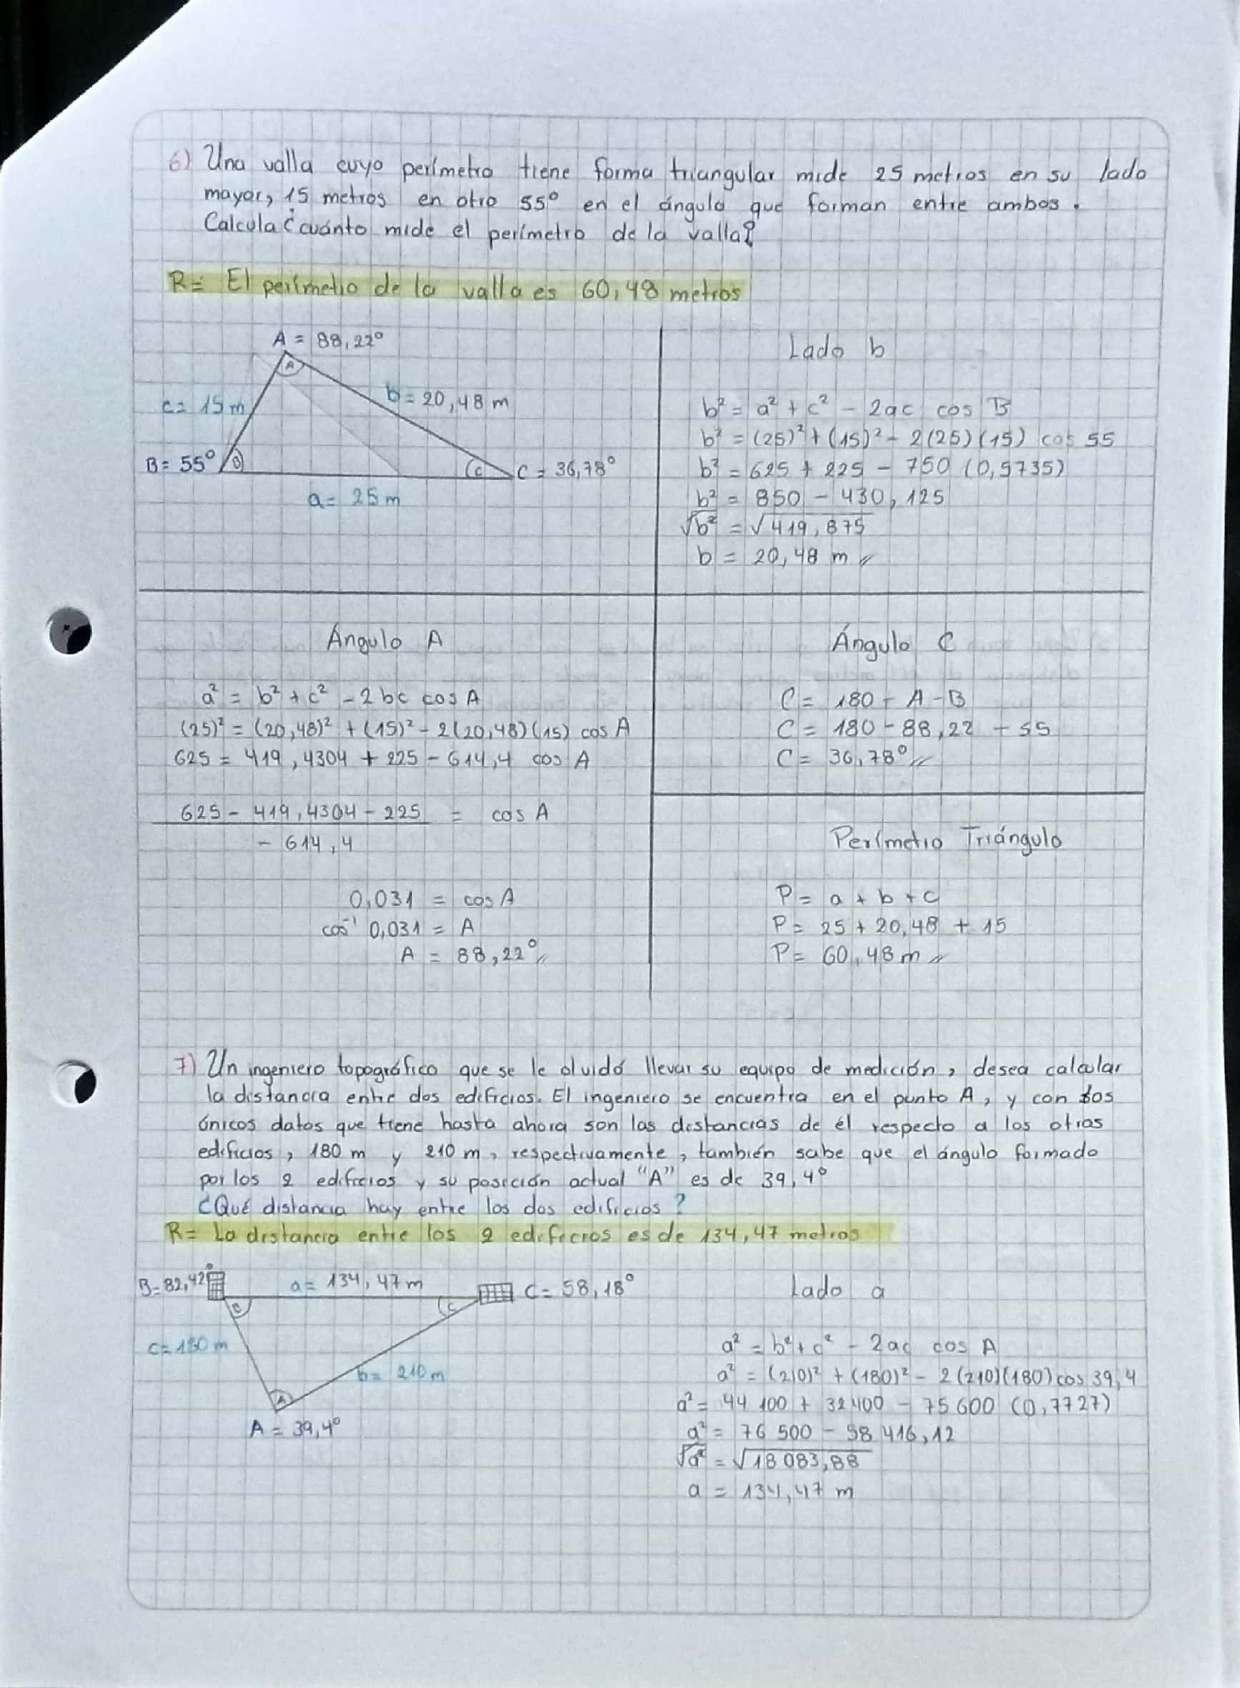 6) Una valla cuyo perímetro tiene forma triangular mide 25 metros en su lado
mayor, 15 metros en otro 55° en el ángulo que forman entre ambos.
Calcula ¿cuánto mide el perímetro de la valla?
R= El perímetro de la valla es 60,48 metros
A = 88,22°
A
c= 15 m
b= 20,48 m
B= 55°
B
C
C = 36,78°
a= 25 m
Lado b
b² = a² + c² - 2ac cos B
b² = (25)² + (15)² - 2(25)(15) cos 55
b² = 625 + 225 - 750 (0,5735)
b² = 850 - 430,125
√b² = √419,875
b = 20,48 m //
Ángulo A
a² = b² + c² - 2bc cos A
(25)² = (20,48)² + (15)² - 2(20,48)(15) cos A
625 = 419,4304 + 225 - 614,4 cos A
625 - 419,4304 - 225 = cos A
- 614,4
0,031 = cos A
cos⁻¹ 0,031 = A
A = 88,22° //
Ángulo C
C = 180 - A - B
C = 180 - 88,22 - 55
C = 36,78° //
Perímetro Triángulo
P = a + b + c
P = 25 + 20,48 + 15
P = 60,48 m //
7) Un ingeniero topográfico que se le olvidó llevar su equipo de medición, desea calcular
la distancia entre dos edificios. El ingeniero se encuentra en el punto A, y con sos
únicos datos que tiene hasta ahora son las distancias de él respecto a los otros
edificios, 180 m y 210 m, respectivamente, también sabe que el ángulo formado
por los 2 edificios y su posición actual "A" es de 39,4°
¿Qué distancia hay entre los dos edificios?
R= La distancia entre los 2 edificios es de 134,47 metros
B= 82,42°
a= 134,47 m
C= 58,18°
B
C
c= 180 m
b= 210 m
A
A = 39,4°
Lado a
a² = b² + c² - 2ac cos A
a² = (210)² + (180)² - 2(210)(180) cos 39,4
a² = 44 100 + 32 400 - 75 600 (0,7727)
a² = 76 500 - 58 416,12
√a² = √18 083,88
a = 134,47 m